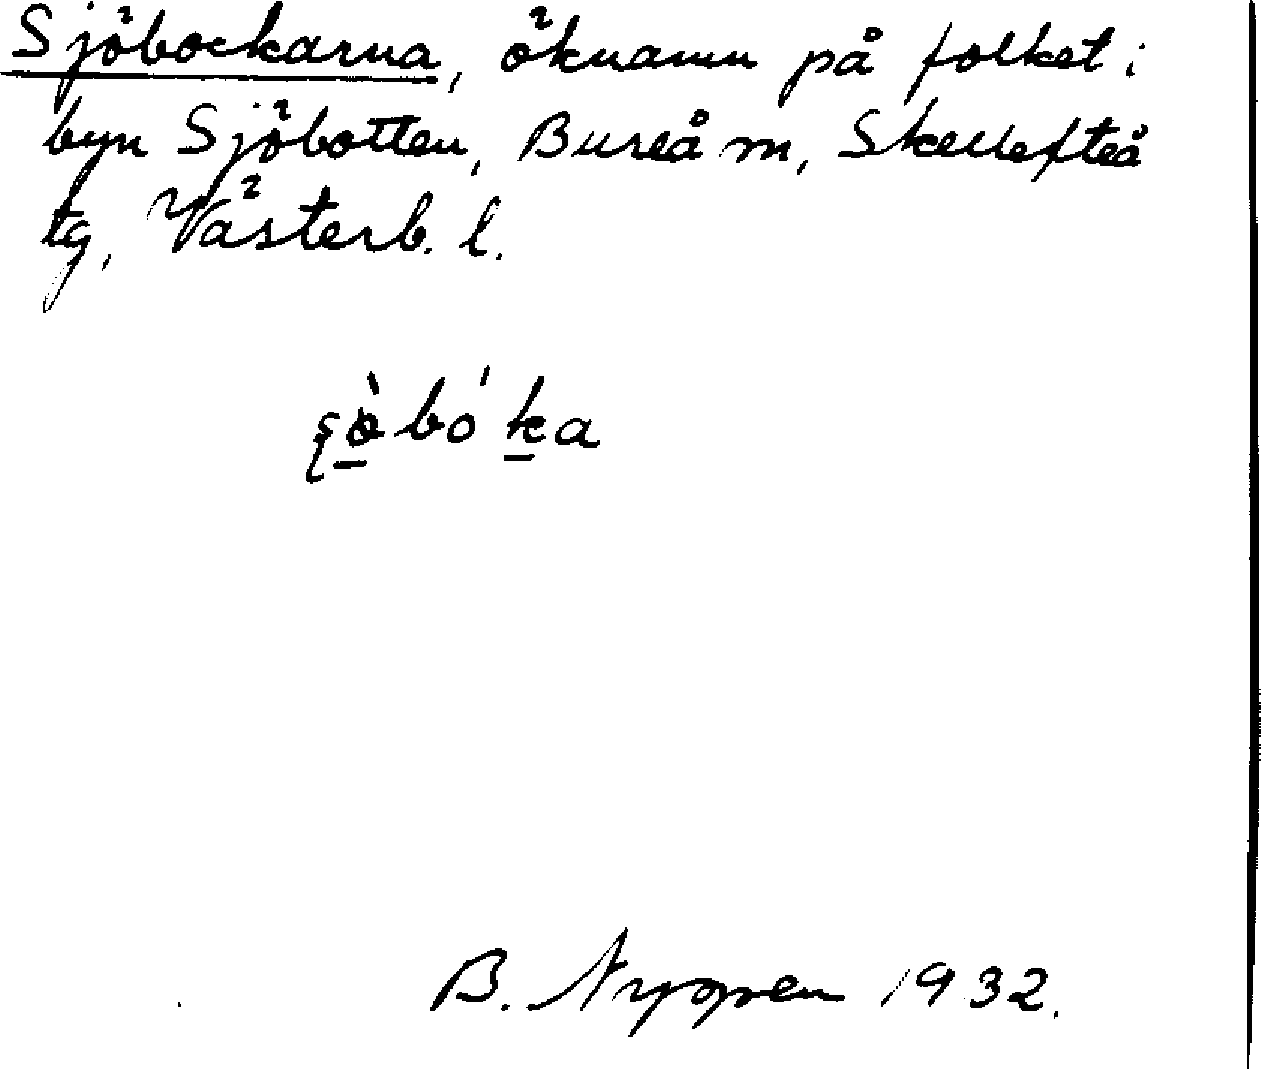 Sjöbockarna, öknamn på folket i
byn Sjöbotten, Bureå m, Skellefteå
tg, Västerb. l.
ʂö̀bó'ka
B. Nygren 1932.